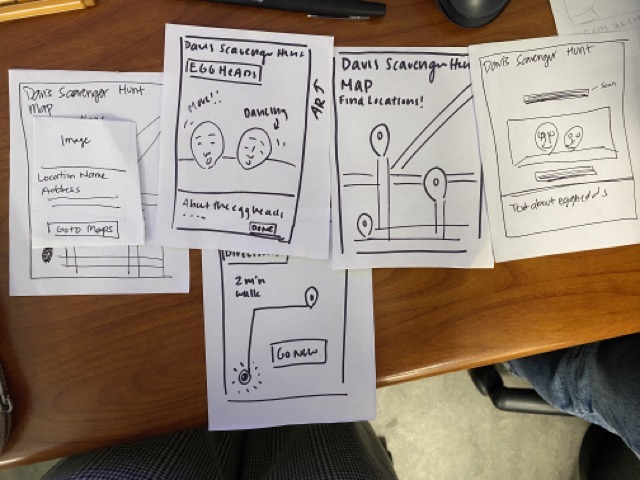 Davis Scavenger Hunt
Map
Image
Location Name
Address
Go to Maps
Davis Scavenger Hunt
EGG HEADS
Move!!
DANCING
AR
About the eggheads
....
DONE
Davis Scavenger Hun
MAP
Find Locations!
Davis Scavenger Hunt
Scan
Text about eggheads
2 min
walk